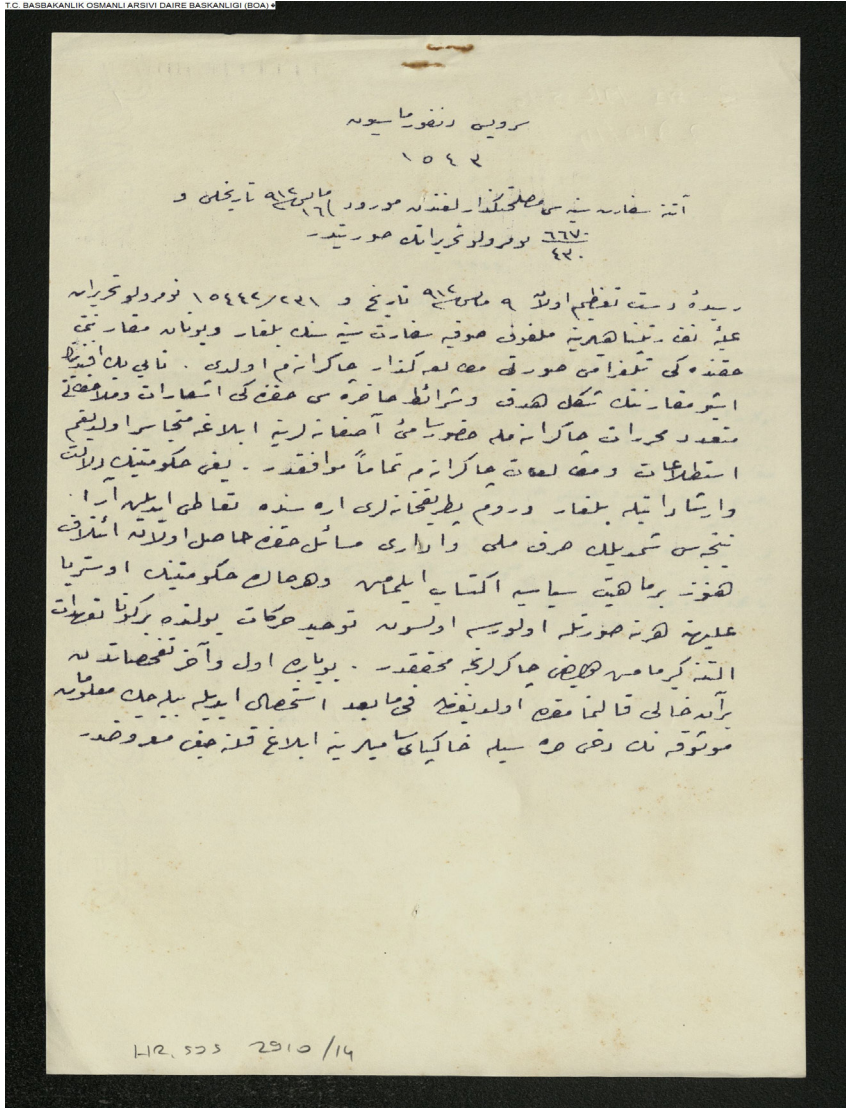 T.C. BASBAKANLIK OSMANLI ARSIVI DAIRE BASKANLIGI (BOA)
سرويس دنفورماسيون
١٥٤٣
آتنه سفارت سنيه سى مصلحتگذارلغندن مورود ١٦ مارس ٩١٢ تاريخلى و
٦٦٧٠/٤٣٠ نومرولو تحريراتك صورتيدر
رسيدۀ دست تعظيم اولان ٩ مارس ٩١٢ تاريخ و ١٥٤٤٢/٢٣١ نومرولو تحريرات
عليۀ نظارتپناهيلرينه ملفوف صوفيه سفارت سنيه سنك بلغار ويونان مقارنتى
حقنده كى تلغرافى صورتى مطالعه گذار چاكرانه م اولدى .
اشبو مقارنتك شكل هدف وشرائط حاضره سى حقنده كى اشعارات وملاحظاتى
متعدد محررات چاكرانه مله حضور سامئ آصفانه لرينه ابلاغه متجاسر اولديغم
استطلاعات ومطالعات چاكرانه م تماماً موافقدر . يعنى حكومتينك دلالت
وارشاداتيله بلغار وروم پطريقخانه لرى اره سنده تعاطى ايديلن آرا
نتيجه سى شمديلك صرف ملى وادارى مسائل حقنده حاصل اولان ائتلاف
هنوز بر ماهيت سياسيه اكتساب ايلمامش وهر حالده حكومتينك اوستريا
عليهنه هر نه صورتله اولورسه اولسون توحيد حركات يولنده بر گونا تعهدات
التنه گيرمامش اولديغى چاكرلرنجه محققدر . بو بابده اول وآخر تفحصاتدن
بر آن خالى قالنمامقده اولديغندن فى مابعد استحصال ايديله بيله جك معلومات
موثوقه نك دخى صره سيله خاكپاى ساميلرينه ابلاغ قلنه جغى معروضدر
HR. SYS 2910/14